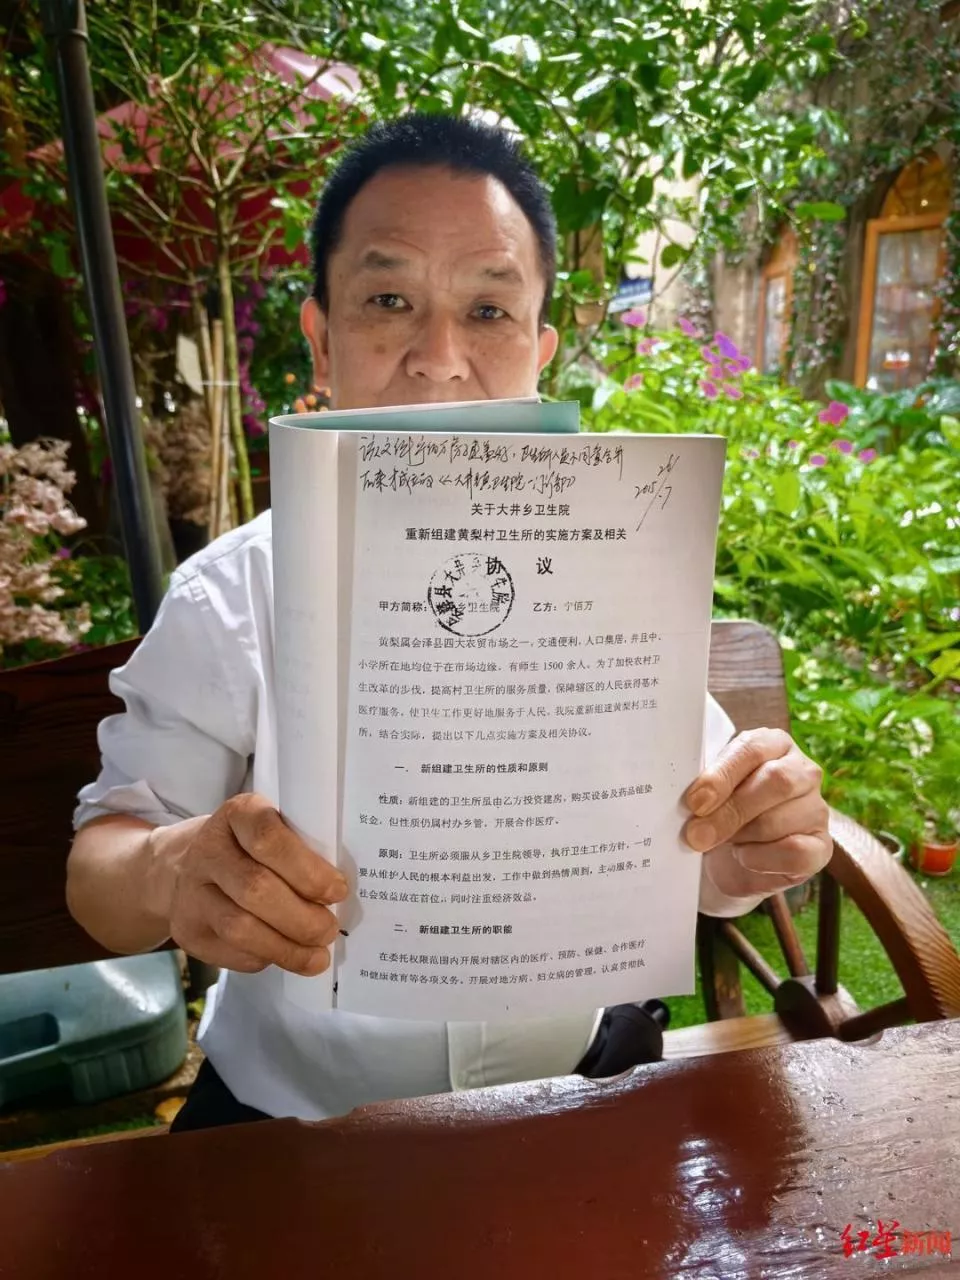 关于大井乡卫生院
重新组建黄梨村卫生所的实施方案及相关
协 议
甲方简称： 乡卫生院 乙方：宁佰万
黄梨属会泽县四大农贸市场之一，交通便利，人口集居，并且中、
小学所在地均位于在市场边缘，有师生 1500 余人。为了加快农村卫
生改革的步伐，提高村卫生所的服务质量，保障辖区的人民获得基本
医疗服务，使卫生工作更好地服务于人民，我院重新组建黄梨村卫生
所，结合实际，提出以下几点实施方案及相关协议。
一． 新组建卫生所的性质和原则
性质：新组建的卫生所虽由乙方投资建房，购买设备及药品铺垫
资金，但性质仍属村办乡管，开展合作医疗。
原则：卫生所必须服从乡卫生院领导，执行卫生工作方针，一切
要从维护人民的根本利益出发，工作中做到热情周到，主动服务，把
社会效益放在首位，同时注重经济效益。
二． 新组建卫生所的职能
在委托权限范围内开展对辖区内的医疗、预防、保健、合作医疗
和健康教育等各项义务。开展对地方病、妇女病的管理，认真贯彻执
1
红星新闻